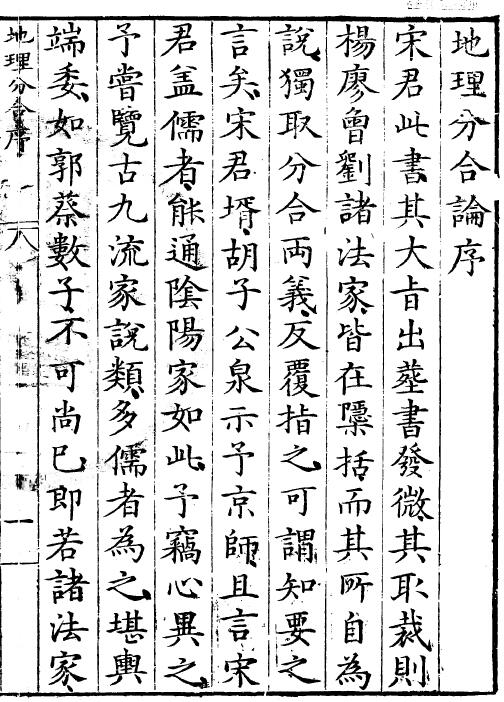 地理分合論序
宋君此書其大旨出塟書發微其取裁則
楊廖曾劉諸法家皆在檃括而其所自為
說獨取分合両義反覆指之可謂知要之
言矣宋君壻胡子公泉示予京師且言宋
君盖儒者能通隂陽家如此予竊心異之
予嘗覽古九流家說類多儒者為之堪輿
端委如郭蔡數子不可尚巳即若諸法家
地理分合序 八 一